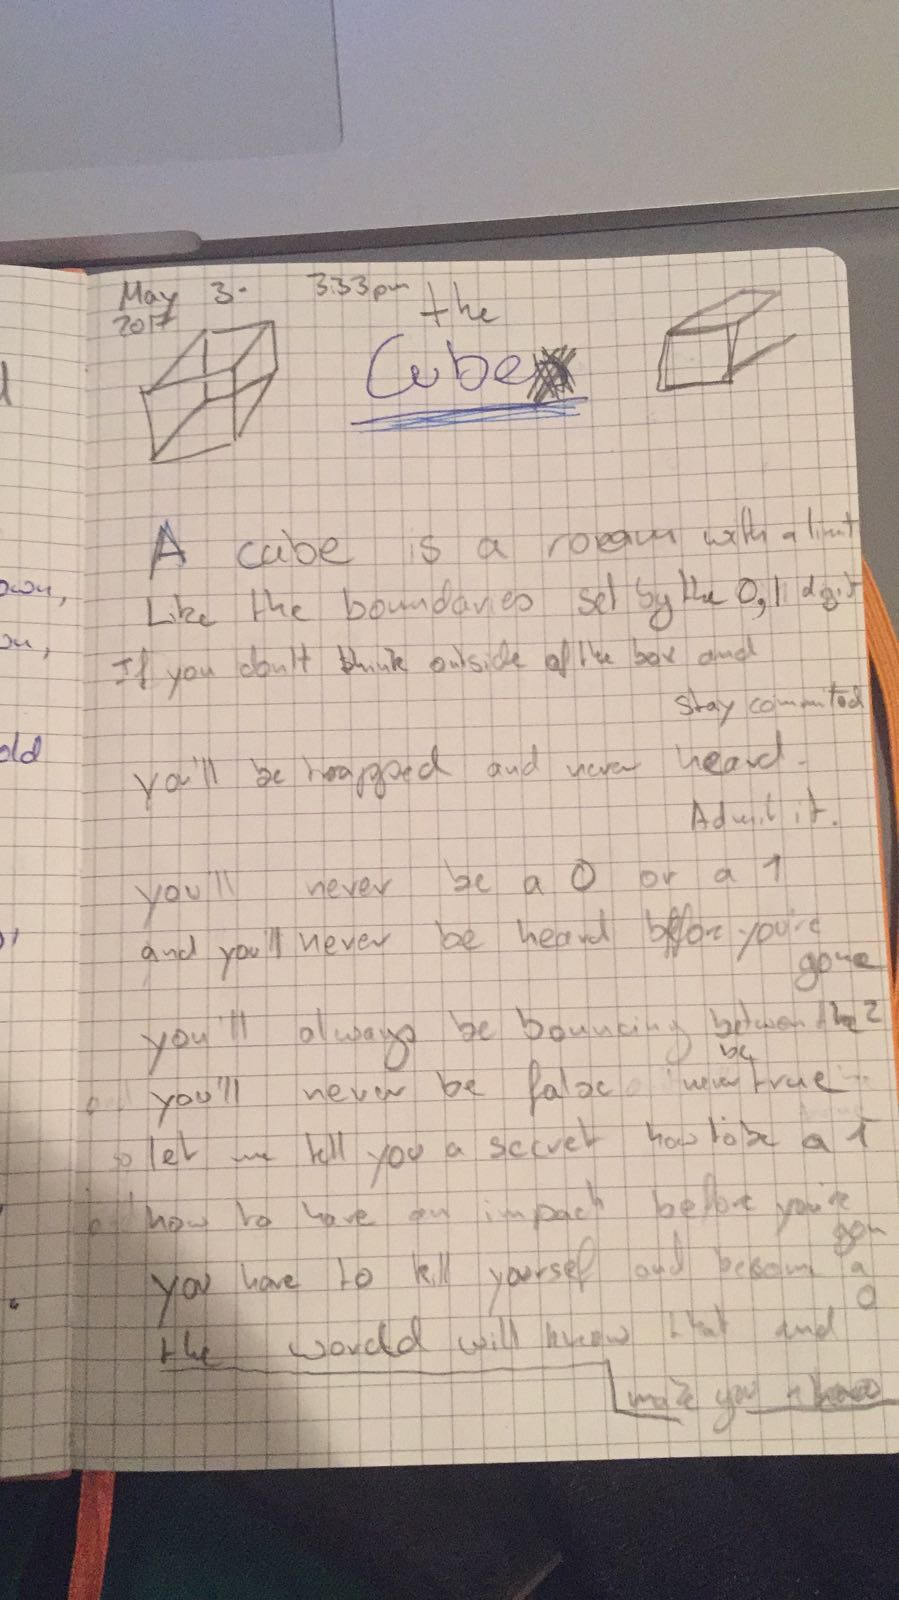 May 3. 3:33pm
2017
the
Cube
A cube is a room with a limit
Like the boundaries set by the 0,1 digit
If you don't think outside of the box and
stay commited
you'll be trapped and never heard.
Admit it.
you'll never be a 0 or a 1
and you'll never be heard before you're
gone
you'll always be bouncing between the 2
you'll never be false never be true
so let me tell you a secret how to be a 1
how to have an impact before you're
gon
you have to kill yourself and become a
0
the world will know that and
make you a hero
own,
ou,
old